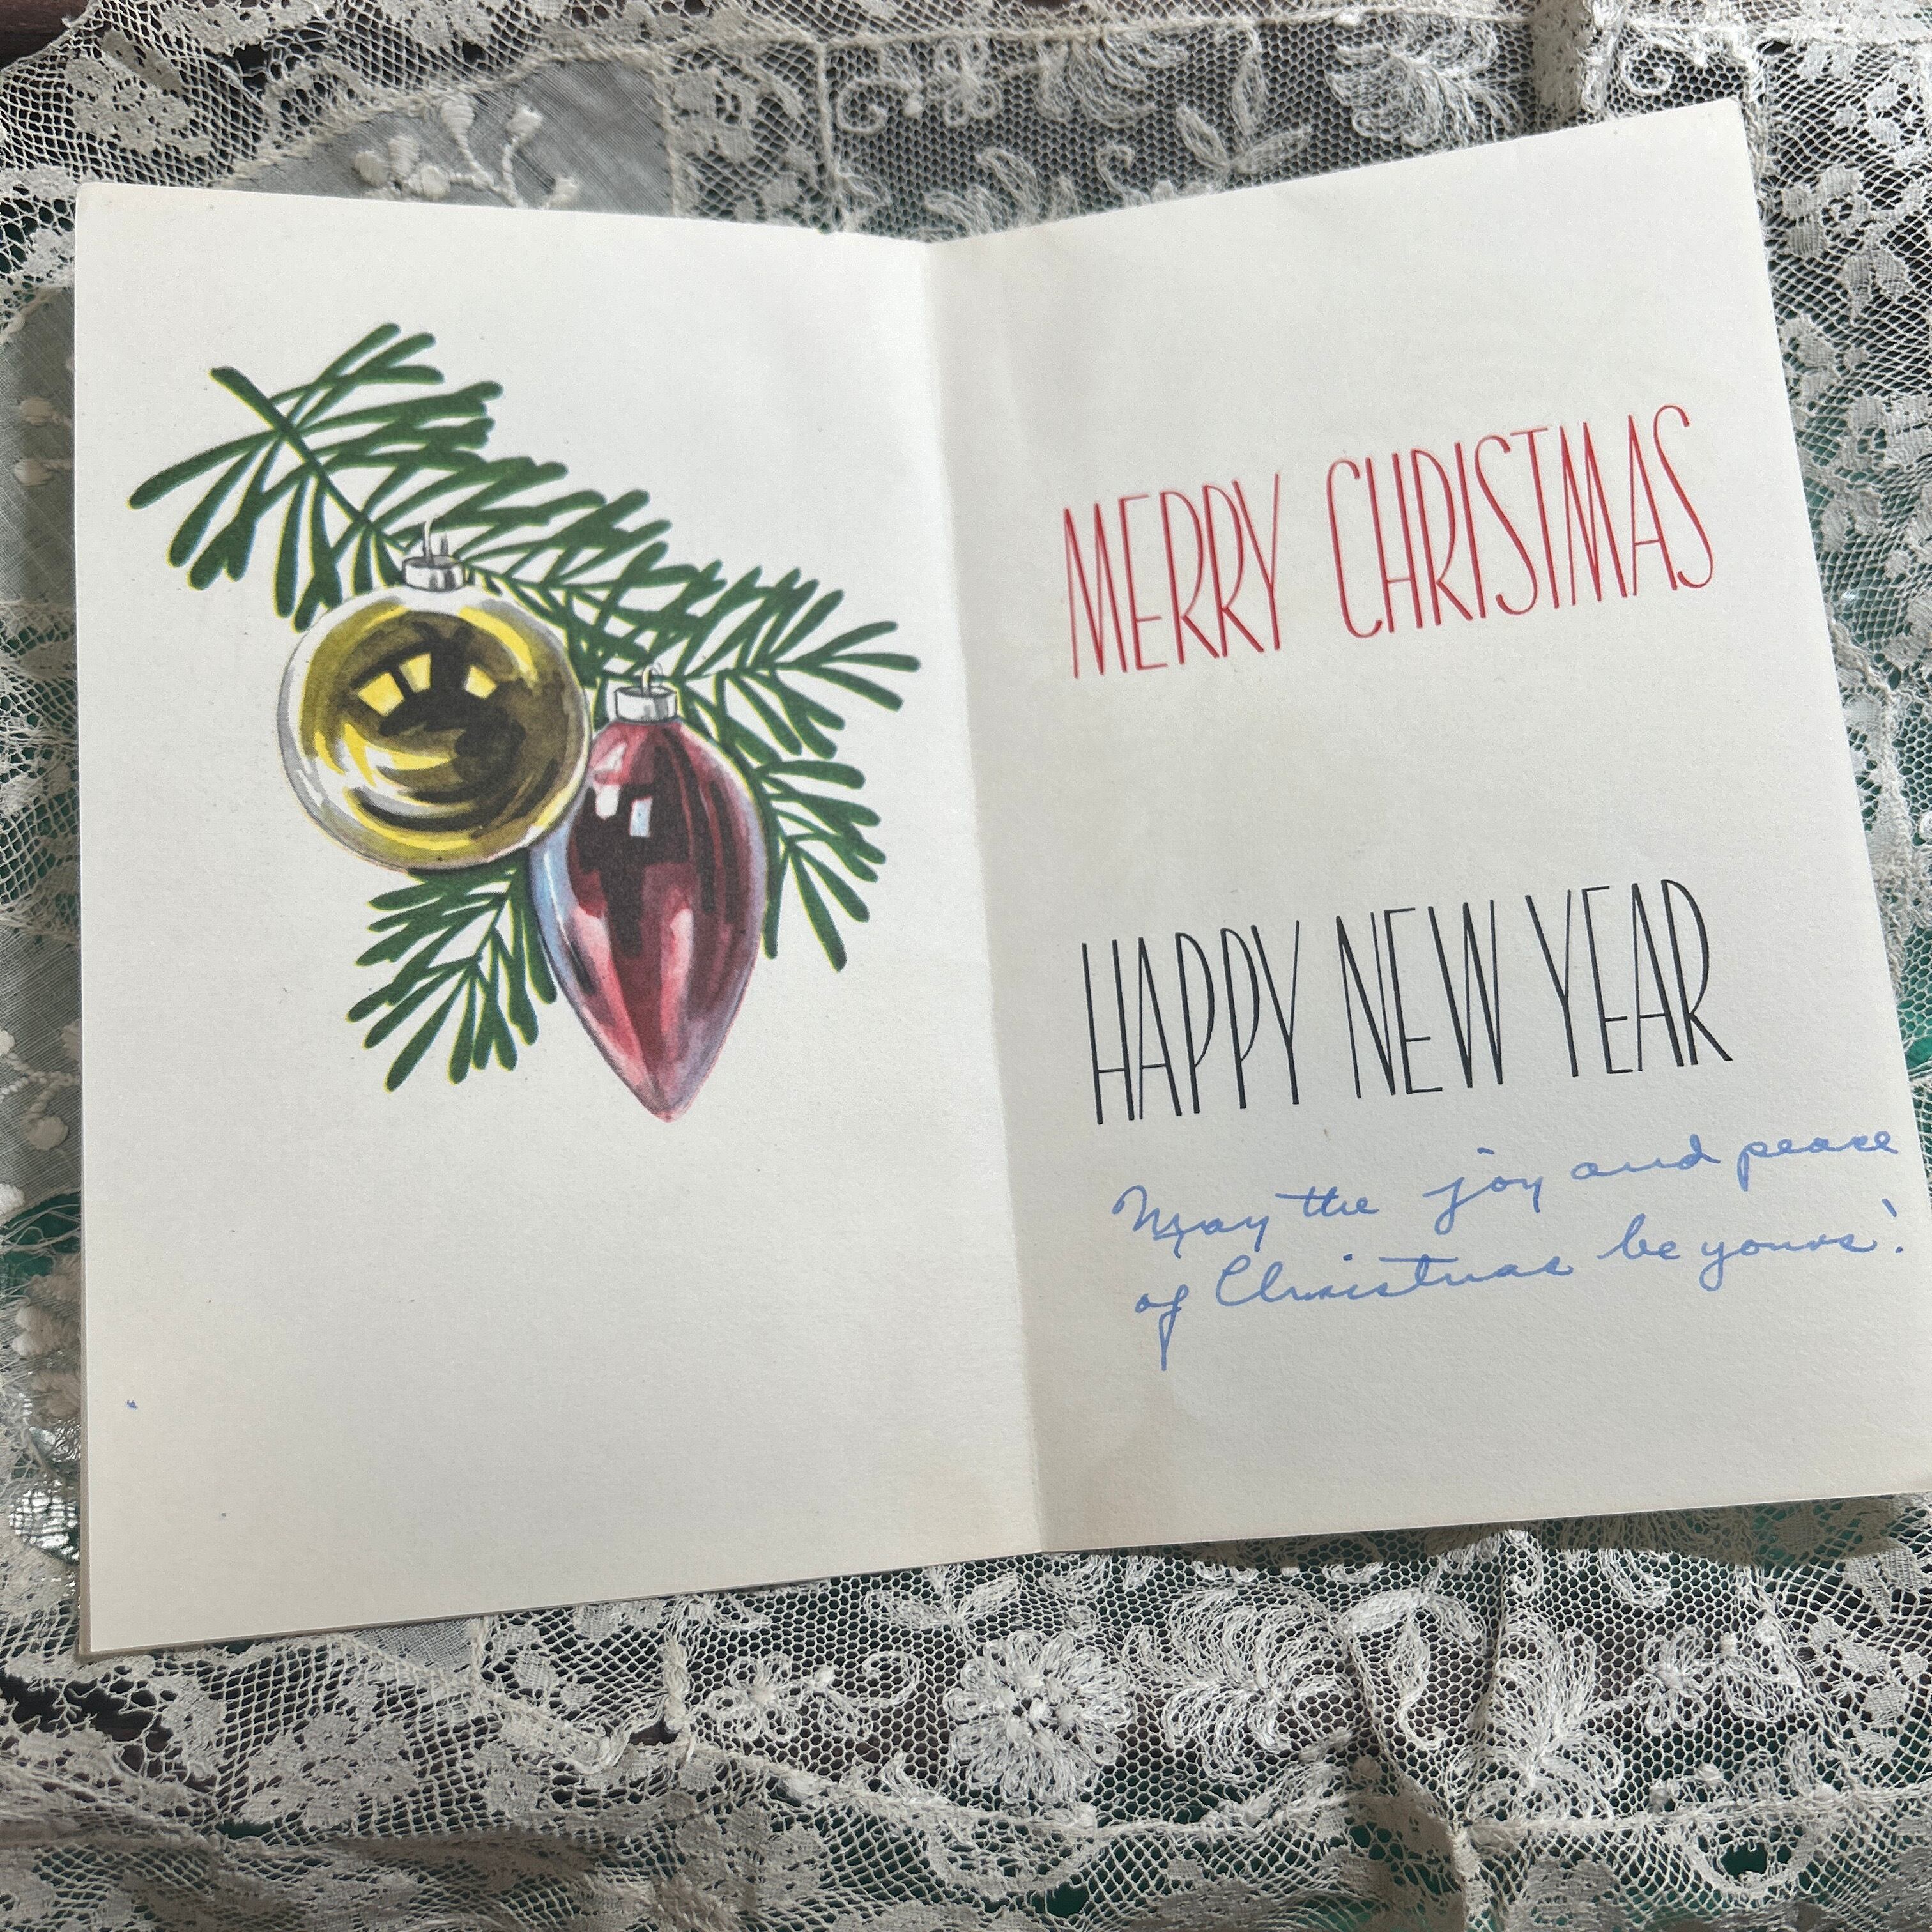 MERRY CHRISTMAS
HAPPY NEW YEAR
May the joy and peace
of Christmas be yours!